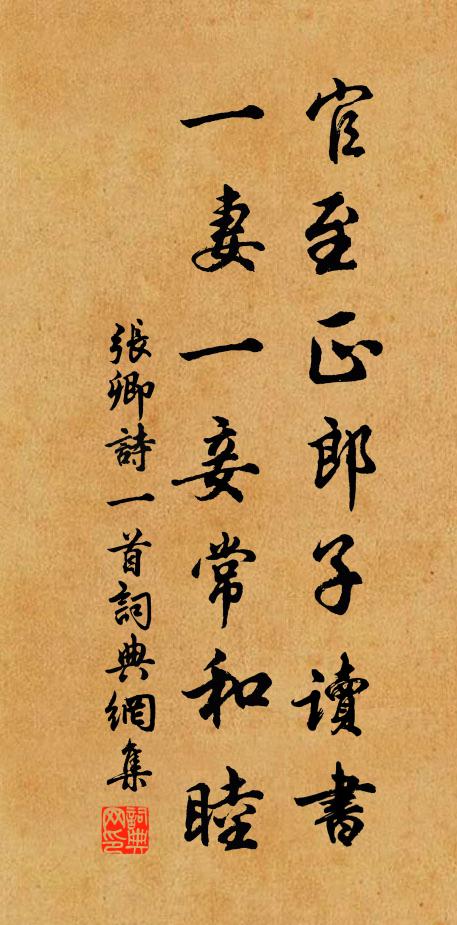 官至正郎子讀書
一妻一妾常和睦
張卿詩一首詞典網集
詞典网印